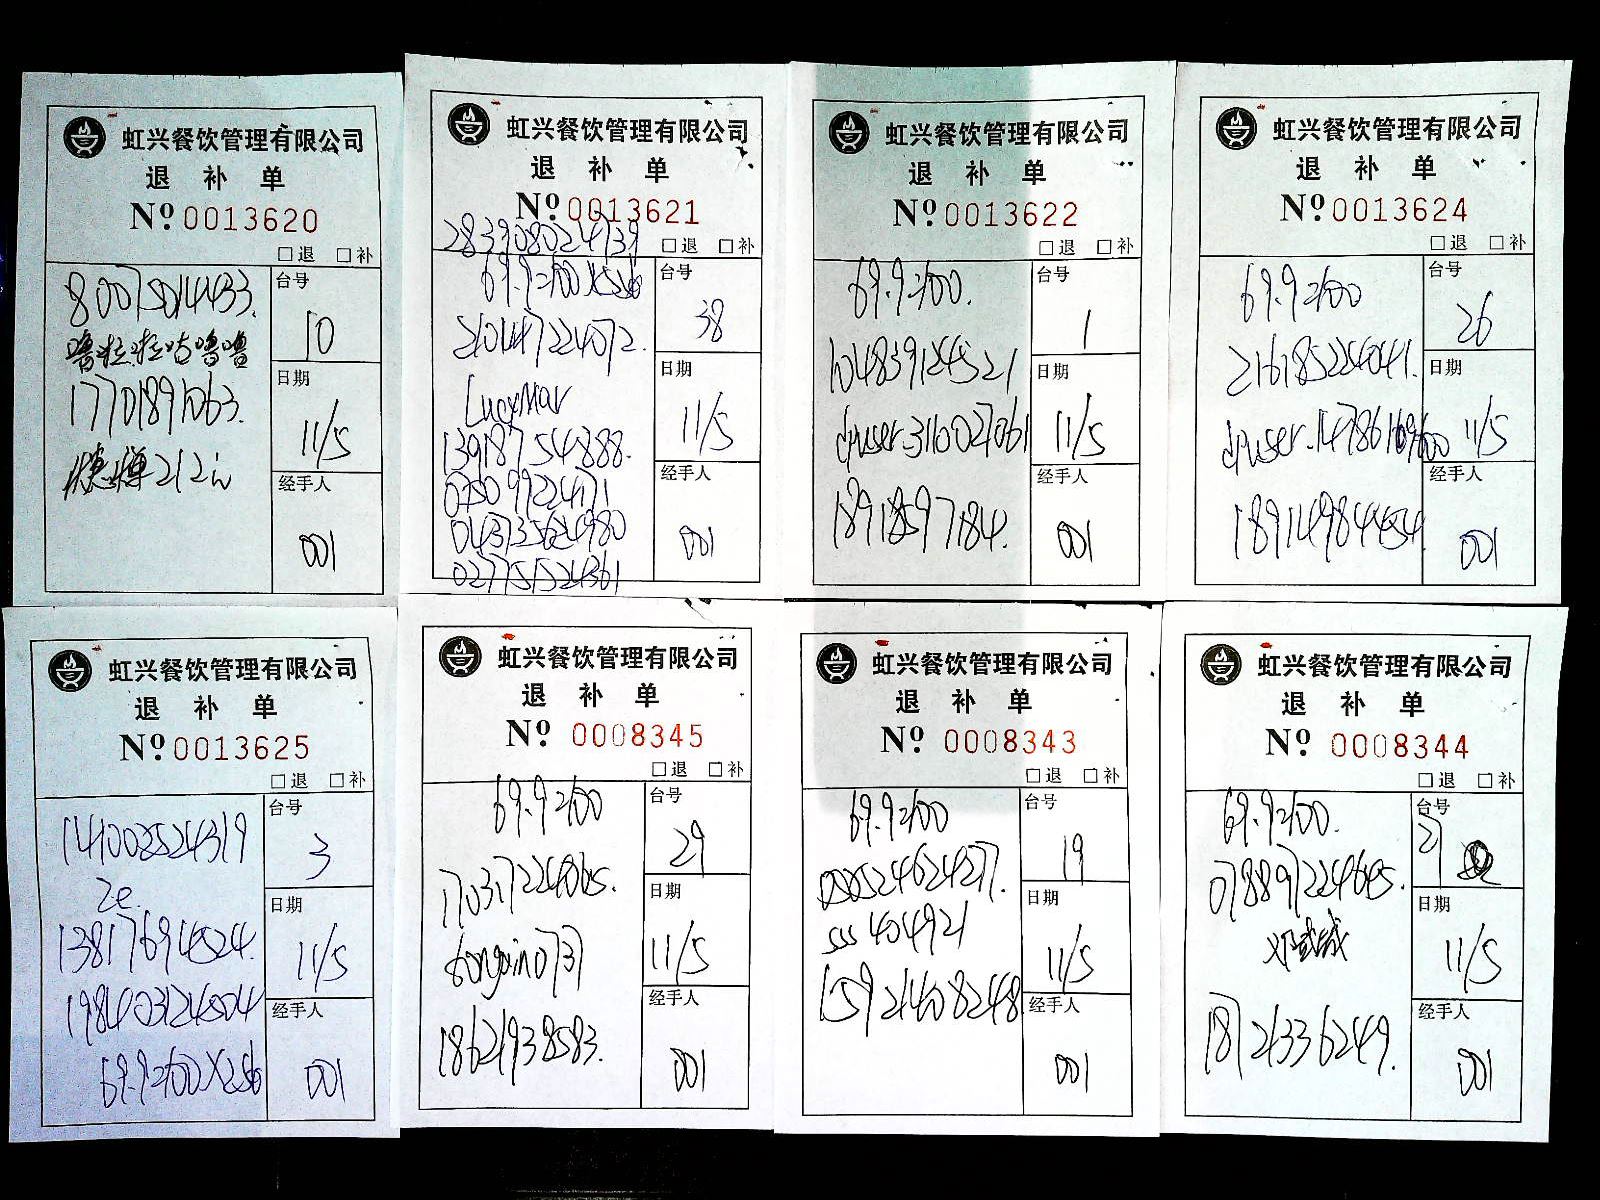 虹兴餐饮管理有限公司
退 补 单
Nº 0013620
□退 □补
80075014433.
噜啦啦咕噜噜
17701891063.
212元
台号
10
日期
11/5
经手人
001
虹兴餐饮管理有限公司
退 补 单
Nº 0013621
□退 □补
283908024739
69.9抵100X5张
210147224072.
LucyMar
13918754888.
075099224171
043735624980
027751524361
台号
38
日期
11/5
经手人
001
虹兴餐饮管理有限公司
退 补 单
Nº 0013622
□退 □补
69.9抵100.
104839124521
dpuser_3110027061
18918597184.
台号
1
日期
11/5
经手人
001
虹兴餐饮管理有限公司
退 补 单
Nº 0013624
□退 □补
69.9抵100
216185224041.
台号
26
日期
11/5
经手人
001
虹兴餐饮管理有限公司
退 补 单
Nº 0013625
□退 □补
141002524319
Ze.
13817694524.
198403124504
69.9抵100X2张
台号
3
日期
11/5
经手人
001
虹兴餐饮管理有限公司
退 补 单
Nº 0008345
□退 □补
69.9抵100
18621938583.
台号
29
日期
11/5
经手人
001
虹兴餐饮管理有限公司
退 补 单
Nº 0008343
□退 □补
69.9抵100
sss404921
15921408248
台号
19
日期
11/5
经手人
001
虹兴餐饮管理有限公司
退 补 单
Nº 0008344
□退 □补
69.9抵100.
078897224645.
邓斌斌
18721336249.
台号
21
日期
11/5
经手人
001